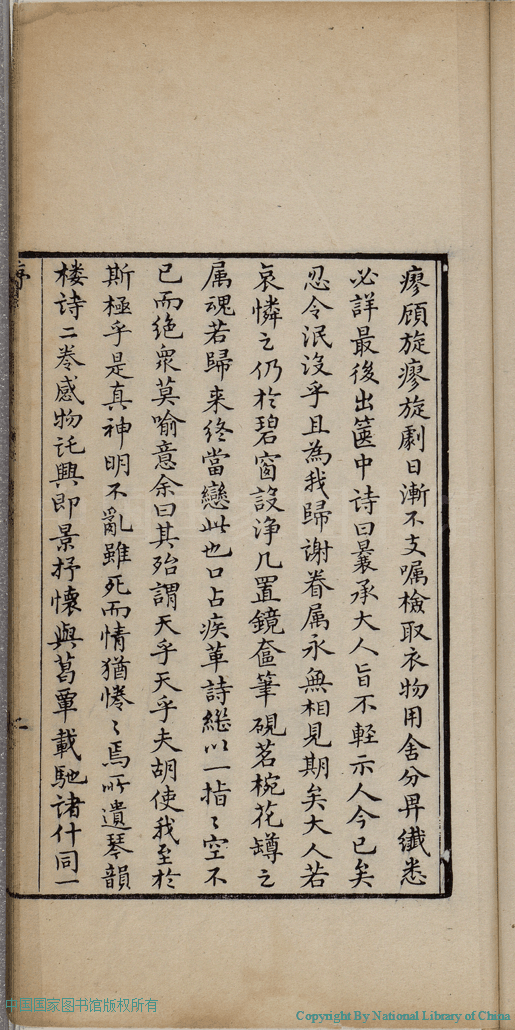 瘳顧旋瘳旋劇日漸不支嘱檢取衣物用舍分畀纖悉
必詳最後出篋中诗曰曩承大人旨不輕示人今已矣
忍令泯沒乎且為我歸谢眷属永無相見期矣大人若
哀憐之仍於碧窗設净几置鏡奩筆硯茗椀花罇之
属魂若歸来终當戀此也口占疾革詩継以一指〻空不
已而绝衆莫喻意余曰其殆謂天乎天乎夫胡使我至於
斯極乎是真神明不亂雖死而情猶惓〻焉所遺琴韻
楼诗二卷感物託興即景抒懷與葛覃載馳諸什同一
序
中国国家图书馆版权所有
Copyright By National Library of China